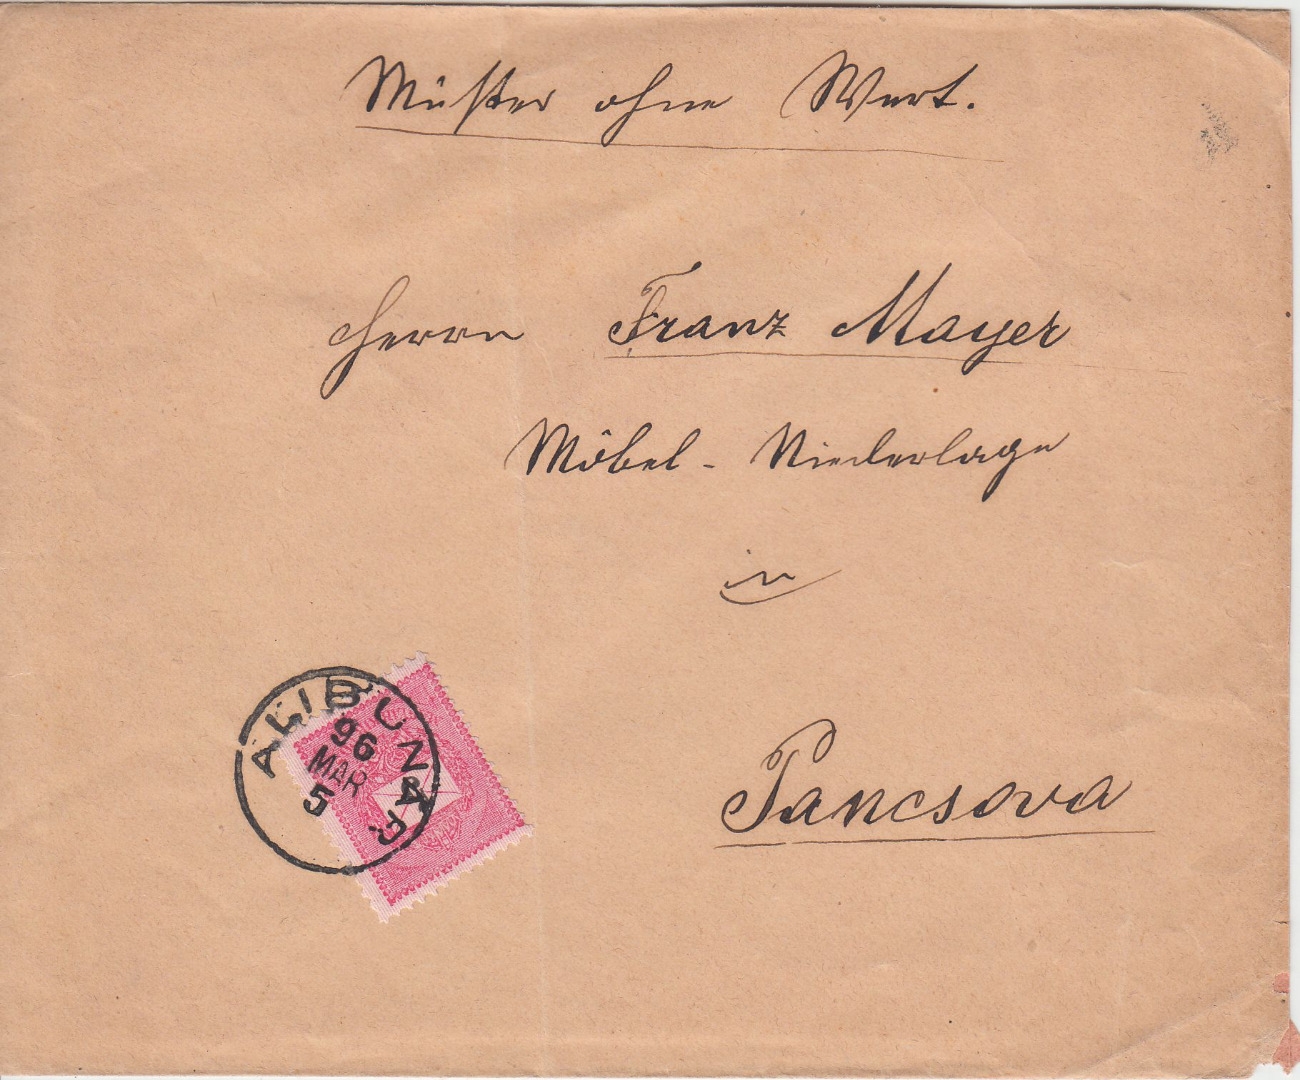 Muster ohne Wert.
Herrn Franz Mayer
Möbel-Niederlage
in
Pancsova
ALIBUNÁR
96
MAR
5